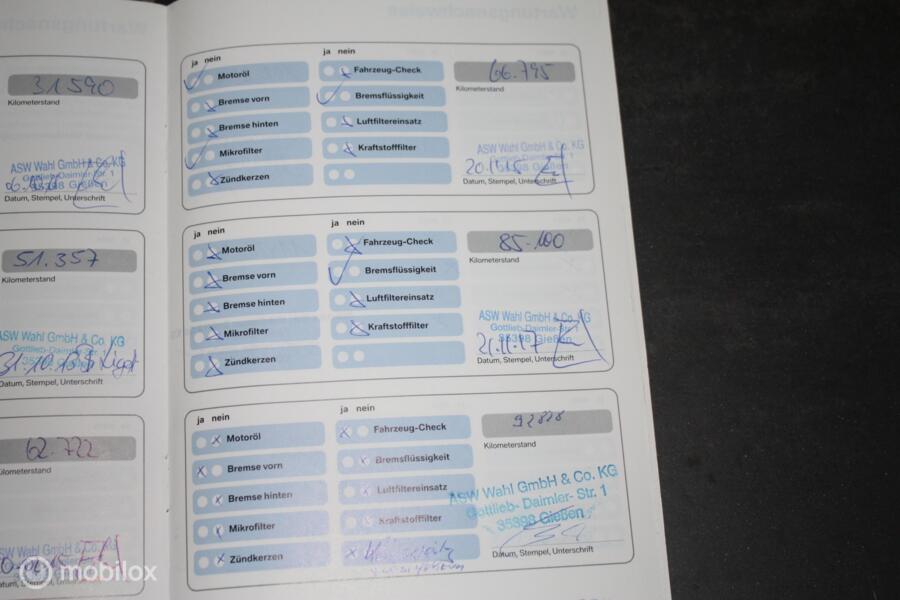 31.590
Kilometerstand
ASW Wahl GmbH & Co. KG
Gottlieb-Daimler-Str. 1
35398 Gießen
Datum, Stempel, Unterschrift
51.357
Kilometerstand
ASW Wahl GmbH & Co. KG
Gottlieb-Daimler-Str.
31.10.13
Datum, Stempel, Unterschrift
62.722
Kilometerstand
ASW Wahl GmbH & Co. KG
Datum, Stempel, Unterschrift
ja nein
Motoröl
Bremse vorn
Bremse hinten
Mikrofilter
Zündkerzen
ja nein
Fahrzeug-Check
Bremsflüssigkeit
Luftfiltereinsatz
Kraftstofffilter
66.795
Kilometerstand
ASW Wahl GmbH & Co. KG
Gottlieb-Daimler-Str. 1
35398 Gießen
Datum, Stempel, Unterschrift
ja nein
Motoröl
Bremse vorn
Bremse hinten
Mikrofilter
Zündkerzen
ja nein
Fahrzeug-Check
Bremsflüssigkeit
Luftfiltereinsatz
Kraftstofffilter
85.100
Kilometerstand
ASW Wahl GmbH & Co. KG
Gottlieb-Daimler-Str. 1
35398 Gießen
21.11.17
Datum, Stempel, Unterschrift
ja nein
Motoröl
Bremse vorn
Bremse hinten
Mikrofilter
Zündkerzen
ja nein
Fahrzeug-Check
Bremsflüssigkeit
Luftfiltereinsatz
Kraftstofffilter
92828
Kilometerstand
ASW Wahl GmbH & Co. KG
Gottlieb- Daimler- Str. 1
35398 Gießen
Datum, Stempel, Unterschrift
mobilox